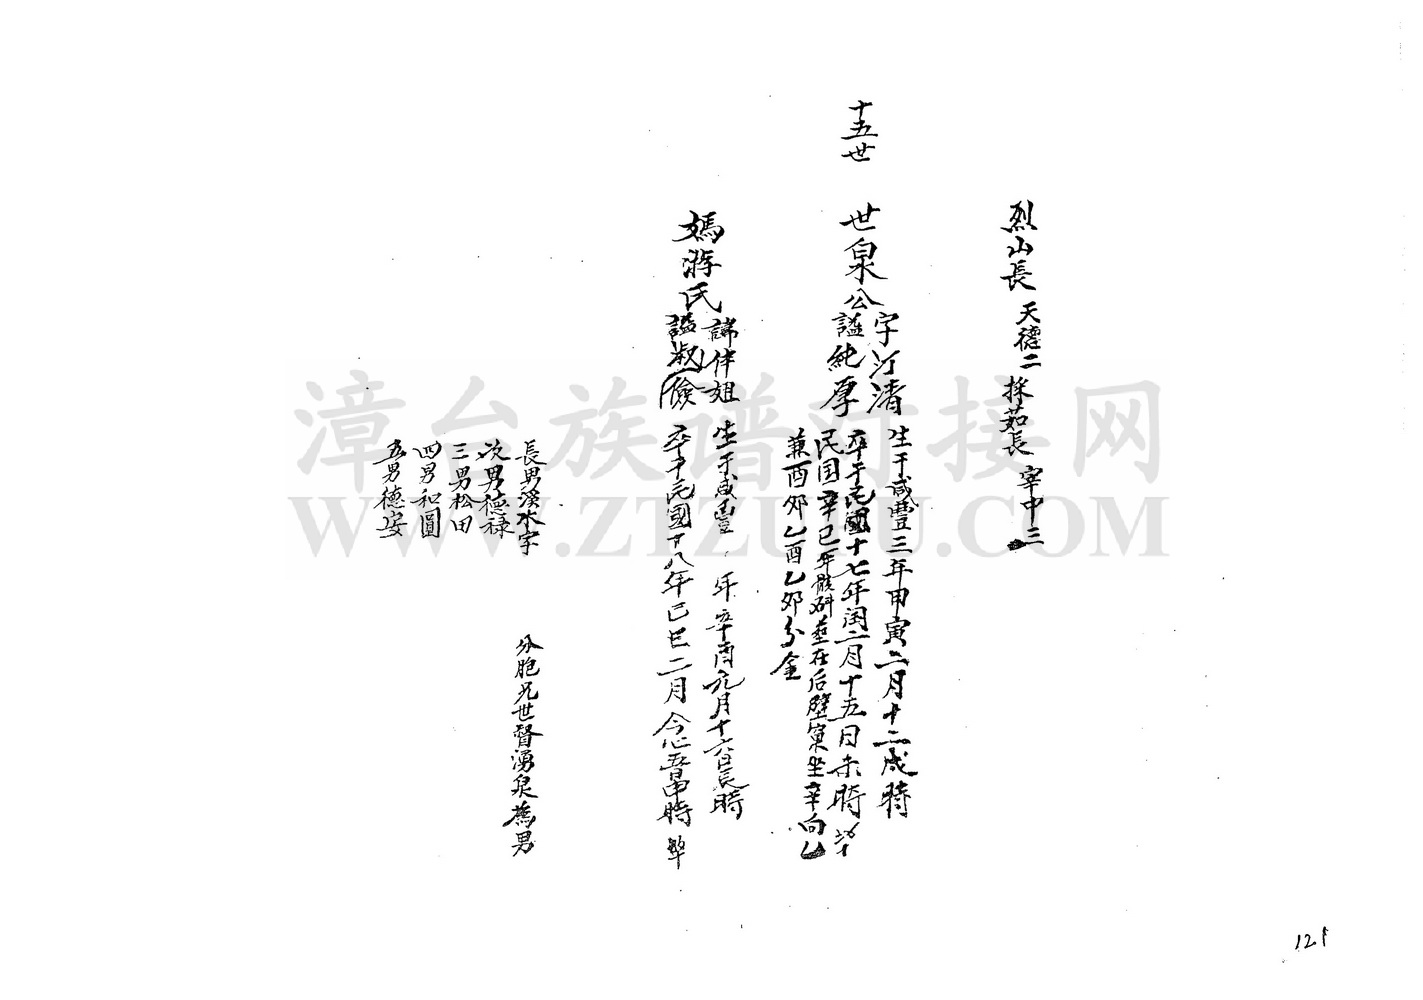 烈山長 天德二 採茹長 宰中三
十五世
世泉公
字汀清
諡純厚
生于咸豐三年甲寅二月十二戌時
卒于民國十七年闰二月十五日未時
民国辛巳年骸研塟在后壁寮坐辛向乙
兼酉夘乙酉乙夘分金
媽游氏
諱伴姐
諡淑儉
生于咸豐 年辛酉九月十六日辰時
卒于民國廿八年己巳二月 五日申時
長男溪水字
次男德禄
三男松田
四男和圓
五男德安
分胞兄世督湧泉為男
漳台族谱对接网
WWW.ZTZUPU.COM
121